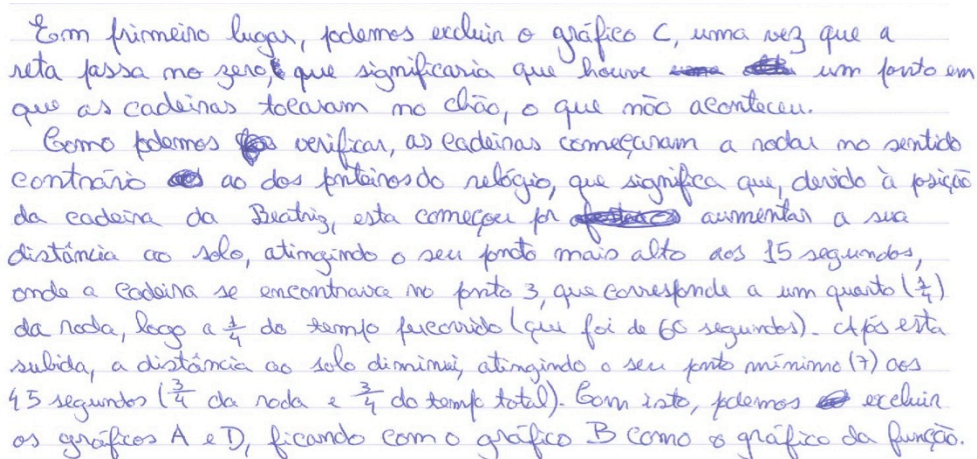 Em primeiro lugar, podemos excluir o gráfico C, uma vez que a
reta passa no zero, que significaria que houve um ponto em
que as cadeiras tocaram no chão, o que não aconteceu.
Como podemos verificar, as cadeiras começaram a rodar no sentido
contrário ao dos ponteiros do relógio, que significa que, devido à posição
da cadeira da Beatriz, esta começou por aumentar a sua
distância ao solo, atingindo o seu ponto mais alto aos 15 segundos,
onde a cadeira se encontrava no ponto 3, que corresponde a um quarto (1/4)
da roda, logo a 1/4 do tempo percorrido (que foi de 60 segundos). Após esta
subida, a distância ao solo diminui, atingindo o seu ponto mínimo (7) aos
45 segundos (3/4 da roda e 3/4 do tempo total). Com isto, podemos excluir
os gráficos A e D, ficando com o gráfico B como o gráfico da função.